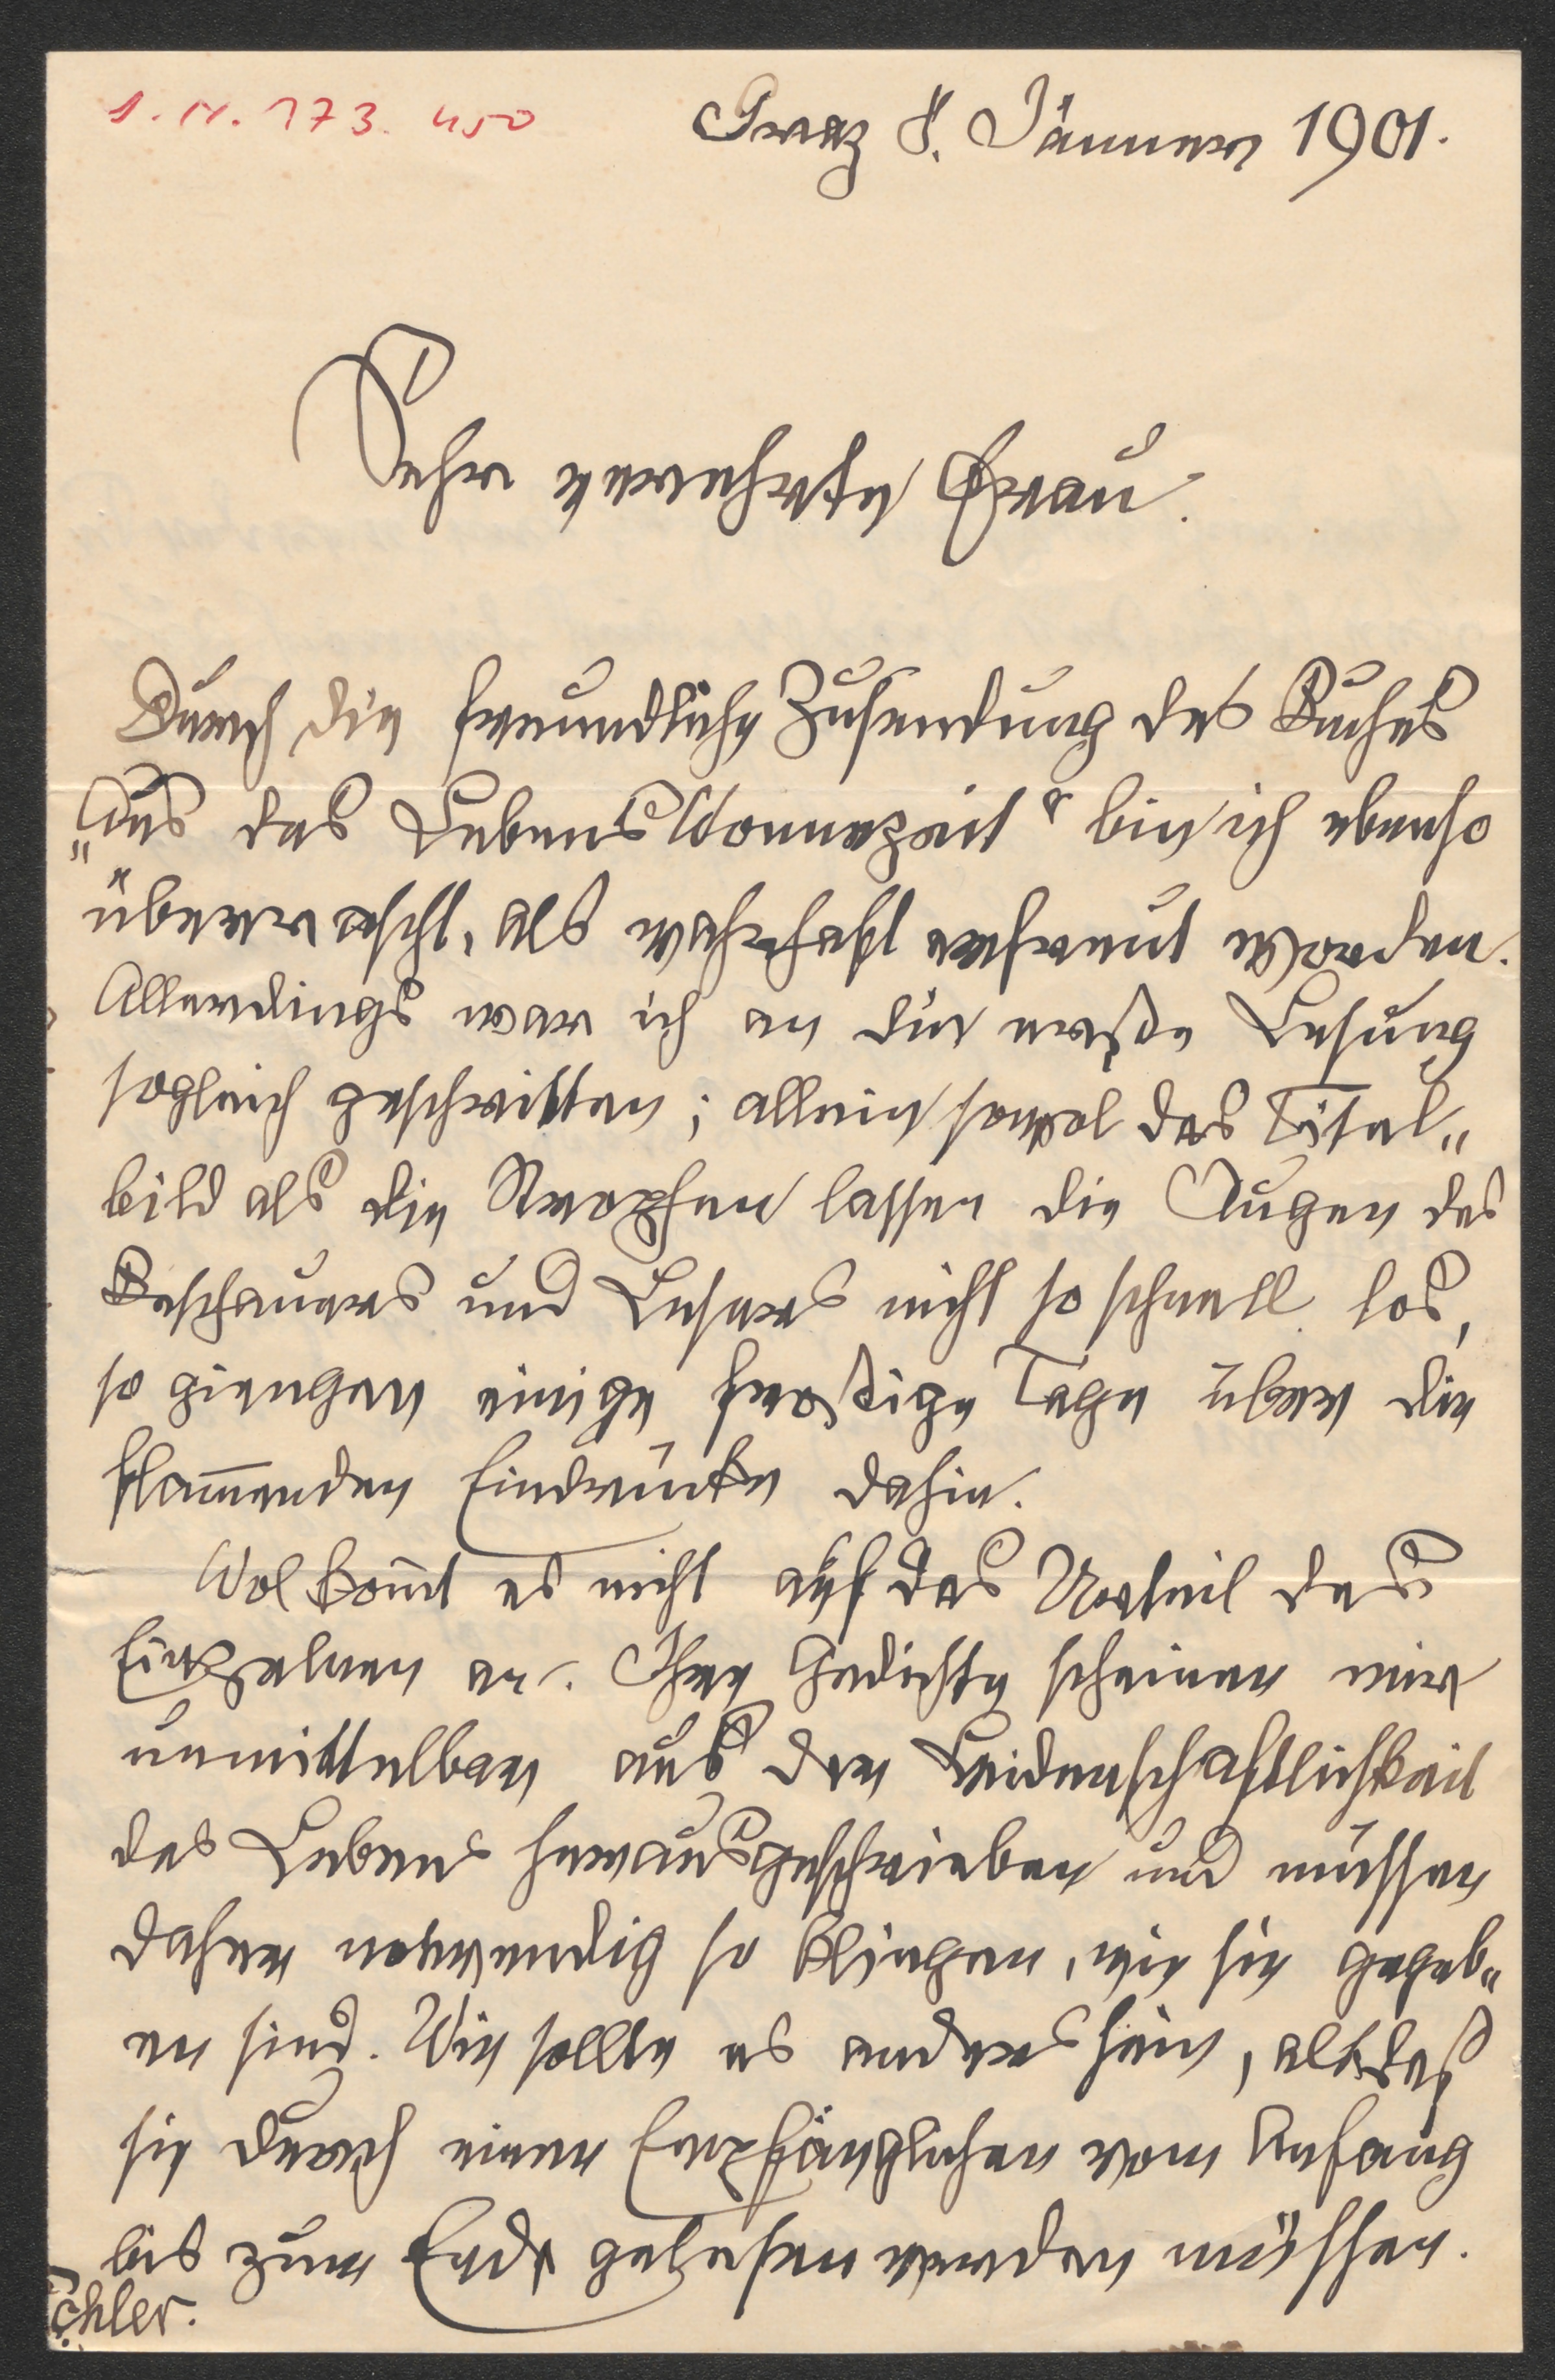 I.N. 173.450
Graz 8. Jänner 1901.
Sehr verehrte Frau.
Durch die freundliche Zusendung des Buches
„Aus des Lebens Wonnezeit" bin ich ebenso
überrascht, als wahrhaft erfreut worden.
Allerdings war ich an die erste Lesung
sogleich geschritten; allein sowol das Titel„
bild als die Strophen lassen die Augen des
Beschauers und Lesers nicht so schnell los,
so giengen einige frostige Tage über die
flam̅enden Eindrücke dahin.
Wol kom̅t es nicht auf das Urteil des
Einzelnen an. Ihre Gedichte scheinen mir
unmittelbar aus der Leidenschaftlichkeit
des Lebens herausgeschrieben und müssen
daher notwendig so klingen, wie sie gegeb„
en sind. Wie sollte es anders sein, als daß
sie durch einen Empfänglichen vom Anfang
bis zum Ende gelesen werden müssen.